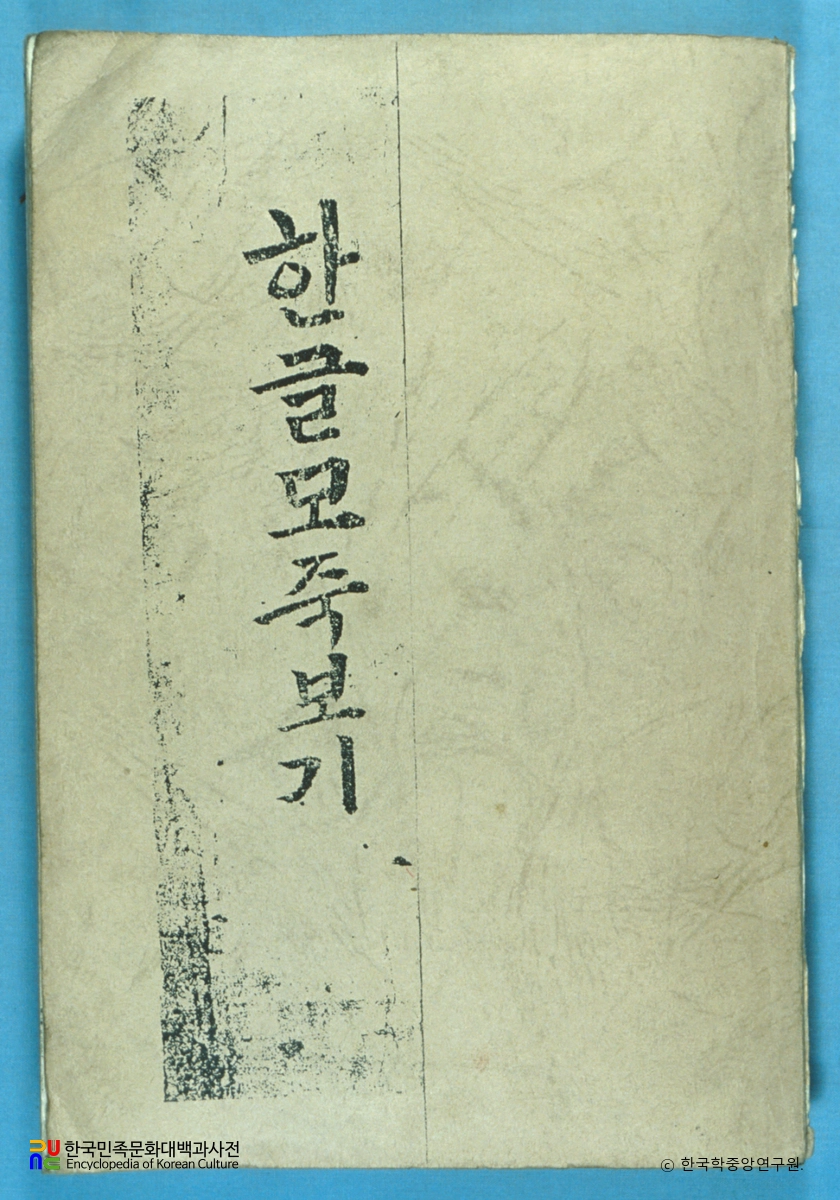 한글모죽보기
한국민족문화대백과사전
Encyclopedia of Korean Culture
© 한국학중앙연구원.